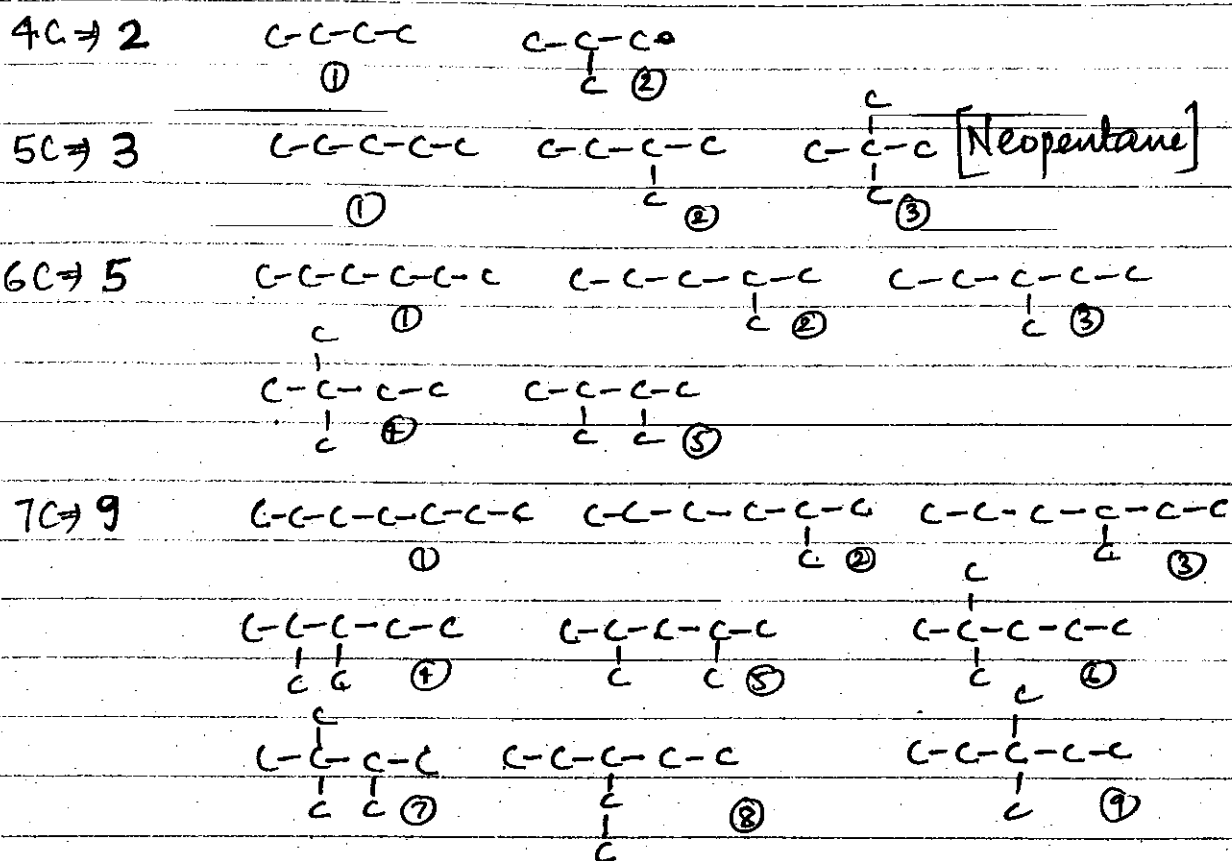 4C ⇒ 2 C-C-C-C ① C-C-C C ②
5C ⇒ 3 C-C-C-C-C ① C-C-C-C C ② C C-C-C C ③ [Neopentane]
6C ⇒ 5 C-C-C-C-C-C ① C-C-C-C-C C ② C-C-C-C-C C ③
C C-C-C-C C ④ C-C-C-C C C ⑤
7C ⇒ 9 C-C-C-C-C-C-C ① C-C-C-C-C-C C ② C-C-C-C-C-C C ③
C-C-C-C-C C C ④ C-C-C-C-C C C ⑤ C C-C-C-C-C C ⑥
C C-C-C-C C C ⑦ C-C-C-C-C C C ⑧ C C-C-C-C-C C ⑨